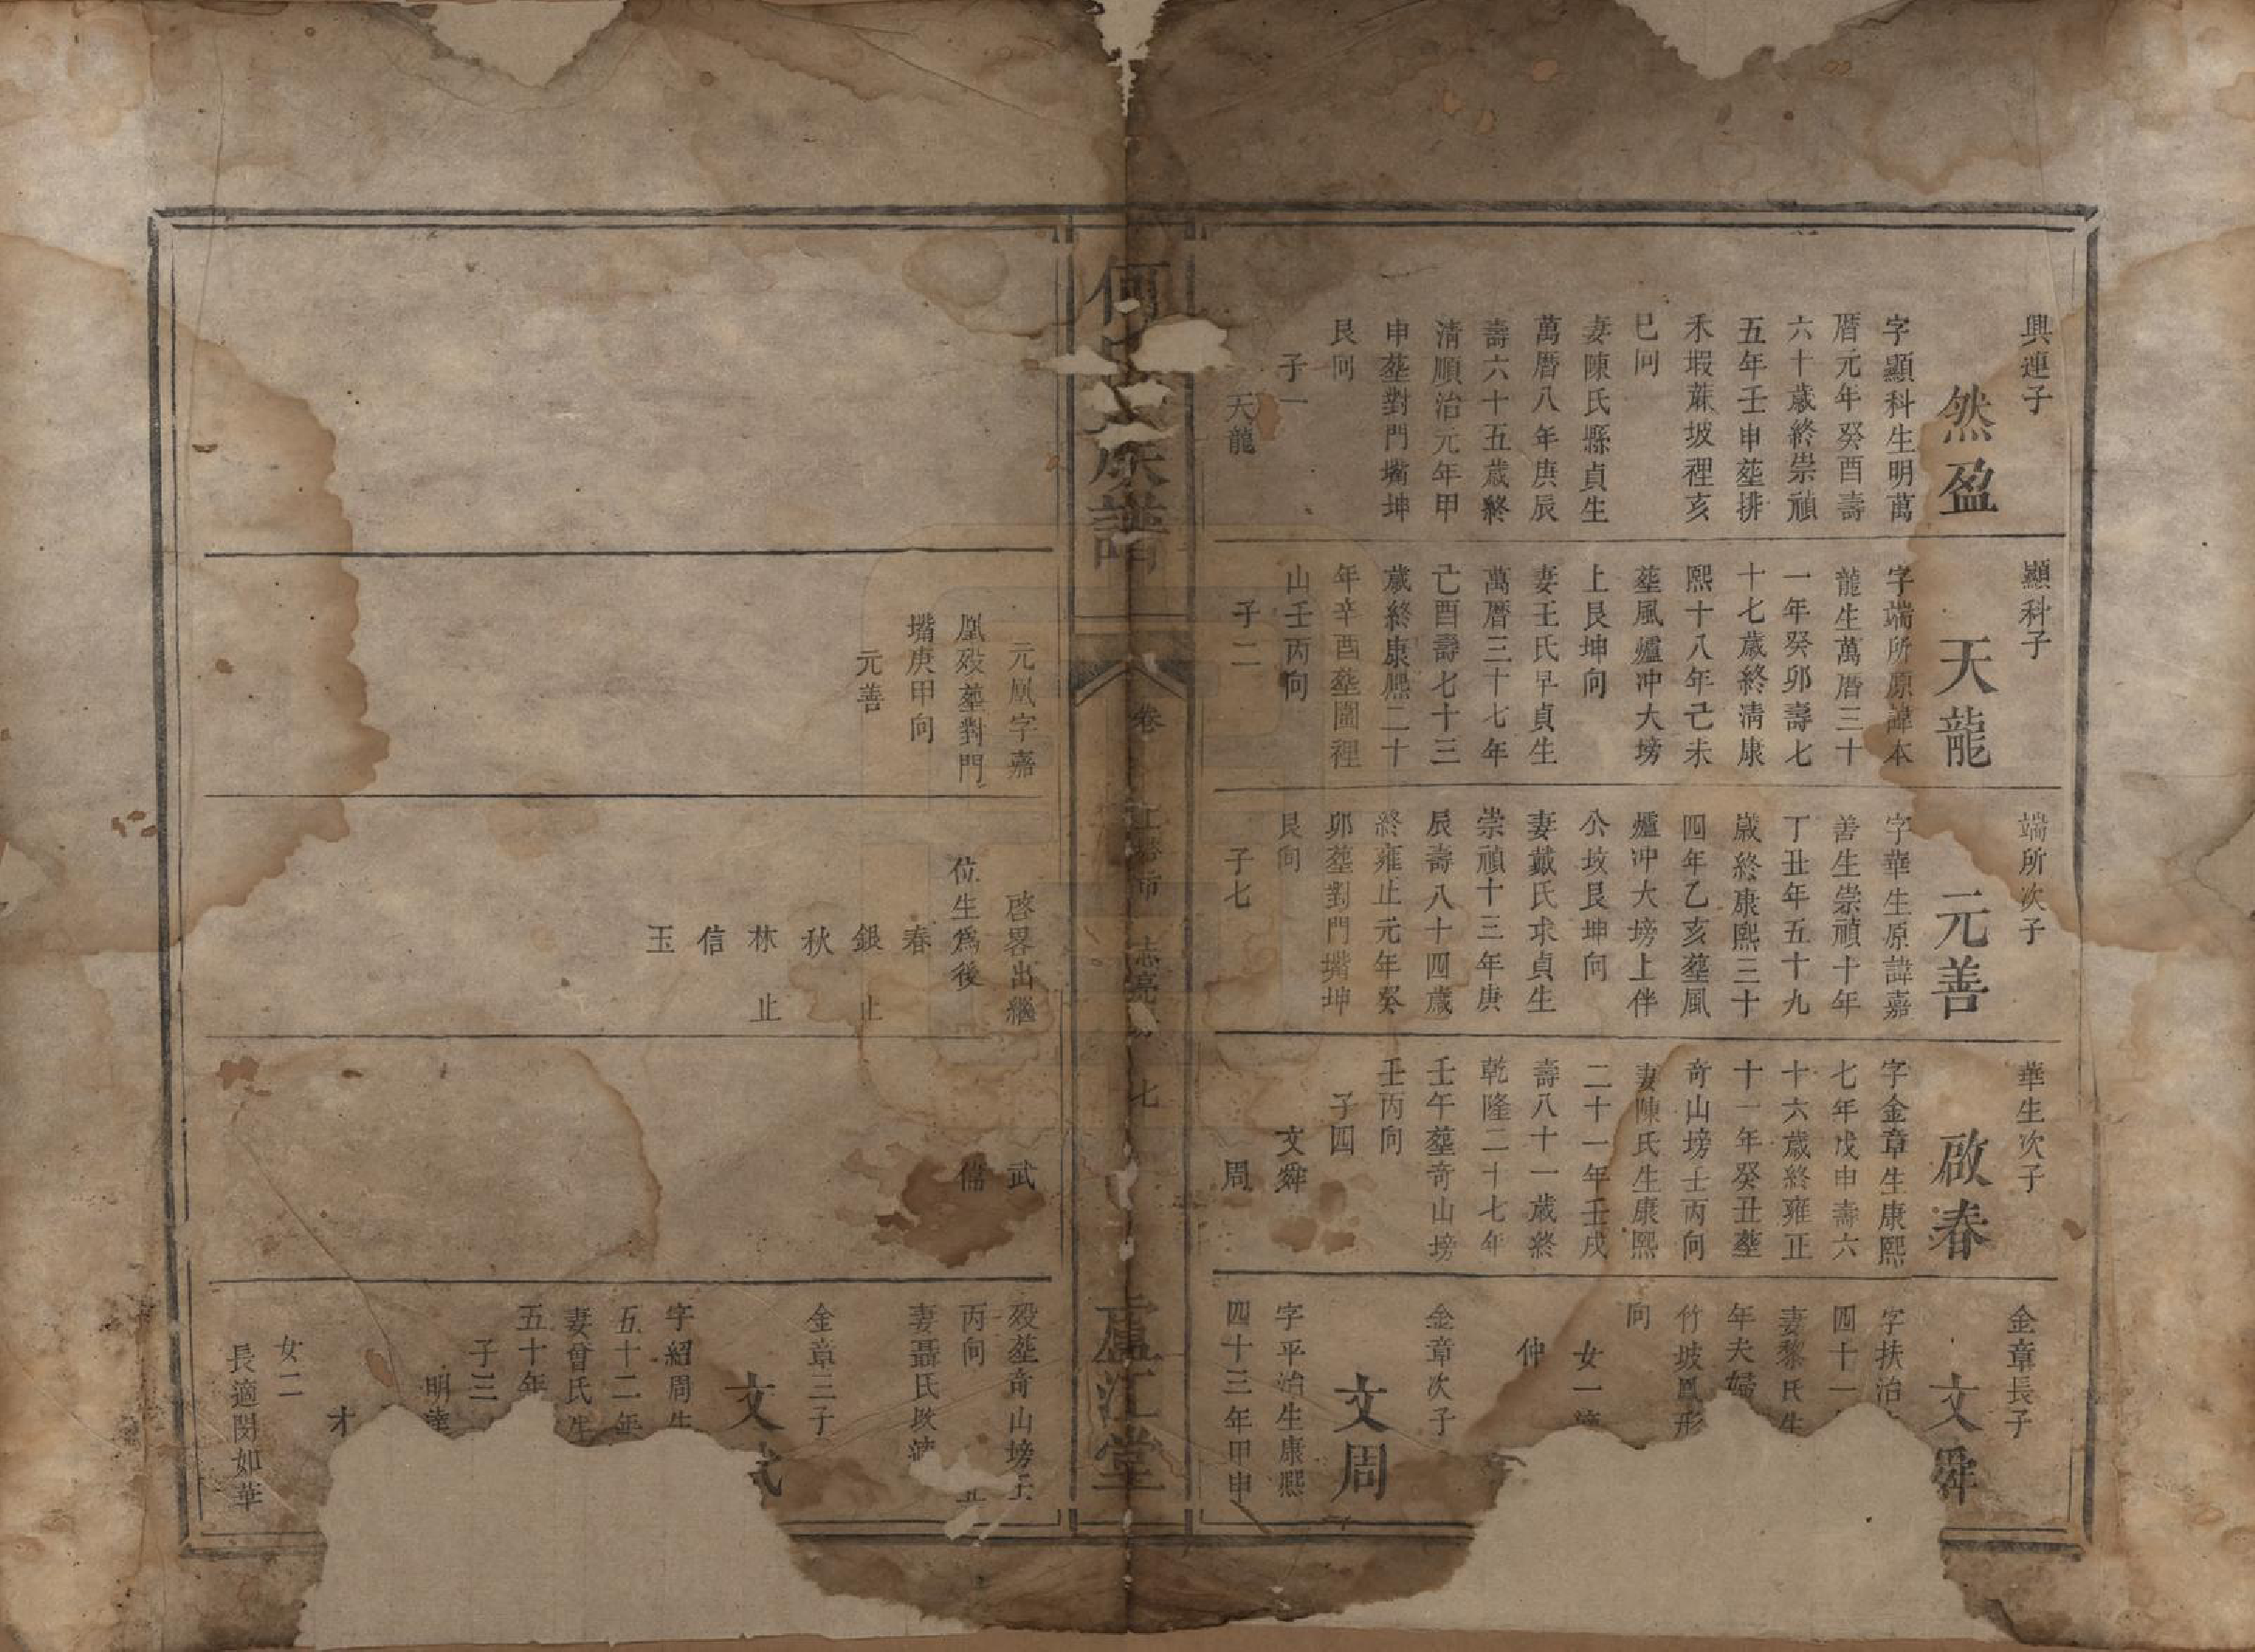 興連子
然盈
字顯科生明萬
曆元年癸酉壽
六十歲終崇禎
五年壬申塟排
禾塅蔴坡裡亥
巳向
妻陳氏縣貞生
萬曆八年庚辰
壽六十五歲終
清順治元年甲
申塟對門嘴坤
艮向
子一
天龍
顯科子
天龍
字端所原諱本
龍生萬曆三十
一年癸卯壽七
十七歲終清康
熙十八年己未
塟風爐冲大塝
上艮坤向
妻王氏早貞生
萬曆三十七年
己酉壽七十三
歲終康熙二十
年辛酉塟園裡
山壬丙向
子二
元凰字嘉
凰歿塟對門
嘴庚甲向
元善
端所次子
元善
字華生原諱嘉
善生崇禎十年
丁丑年五十九
歲終康熙三十
四年乙亥塟風
爐冲大塝上伴
公坟艮坤向
妻戴氏求貞生
崇禎十三年庚
辰壽八十四歲
終雍正元年癸
卯塟對門嘴坤
艮向
子七
啓畧出繼
位生爲後
春
銀 止
秋
林 止
信
玉
華生次子
啟春
字金章生康熙
七年戊申壽六
十六歲終雍正
十一年癸丑塟
奇山塝壬丙向
妻陳氏生康熙
二十一年壬戌
壽八十一歲終
乾隆二十七年
壬午塟奇山塝
壬丙向
子四
文舜
周
武
備
金章長子
文舜
字扶治
四十一
妻黎氏生
年夫婦
竹坡鳳形
向
女一適
仲
金章次子
文周
字平治生康熙
四十三年甲申
歿塟奇山塝壬
丙向
妻聶氏
金章三子
文武
字紹周生
五十二年
妻曾氏生
五十年
子三
明達
才
女二
長適閔如華
何氏族譜
卷
上塔市 志亮
七
廬江堂